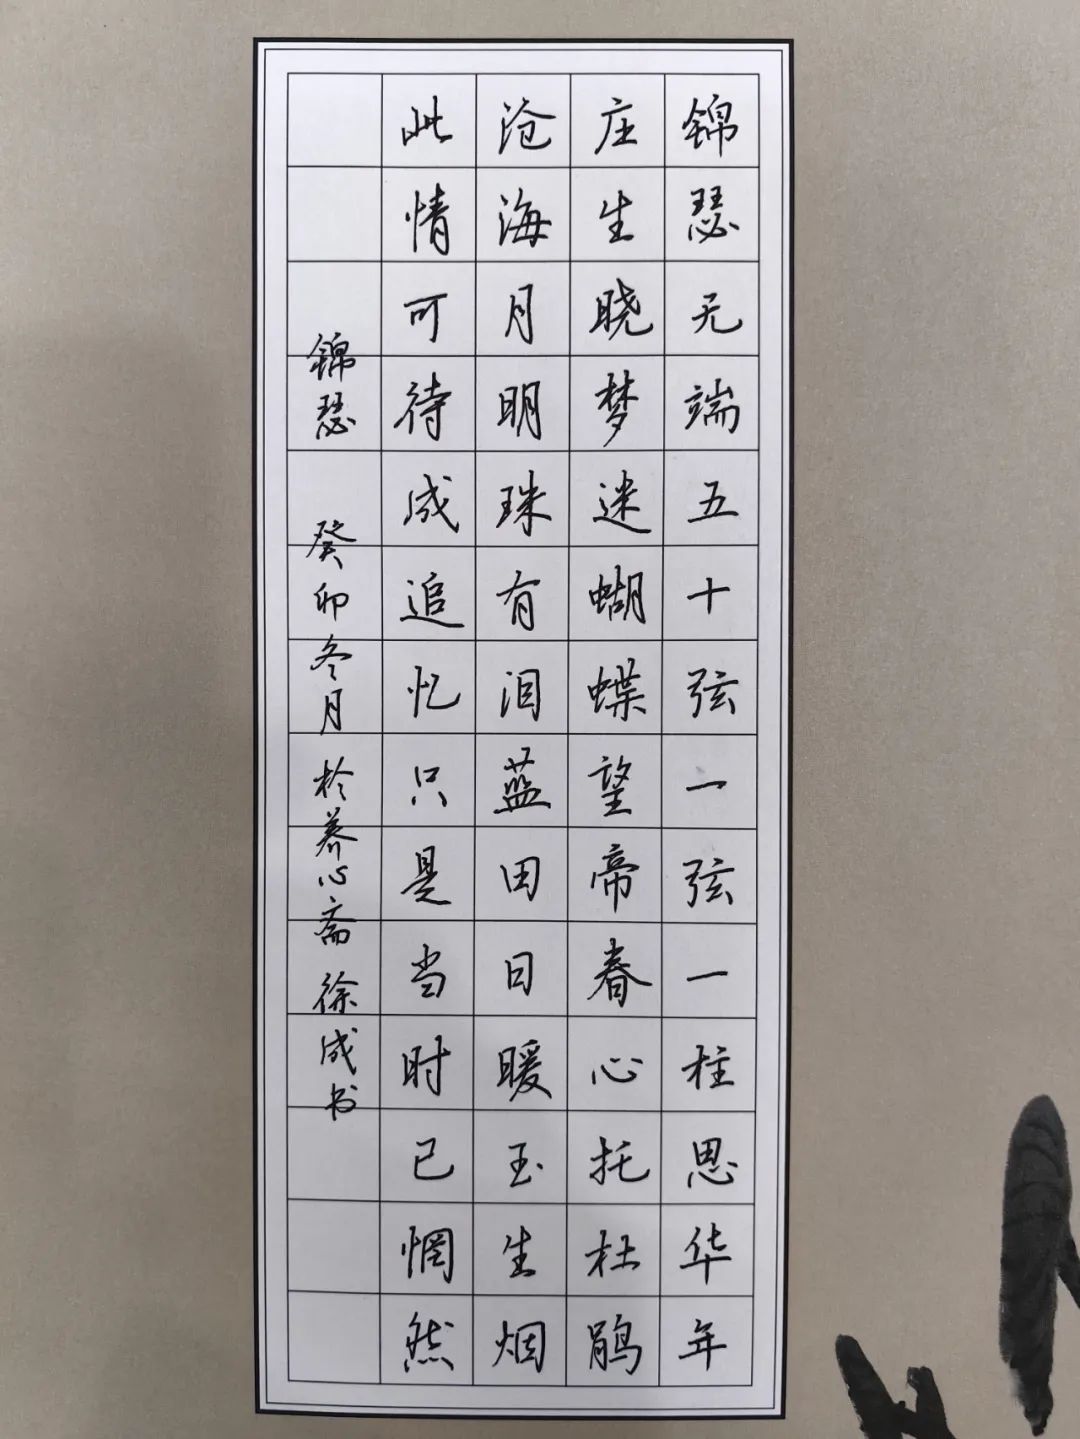 锦瑟无端五十弦一弦一柱思华年
庄生晓梦迷蝴蝶望帝春心托杜鹃
沧海月明珠有泪蓝田日暖玉生烟
此情可待成追忆只是当时已惘然
锦瑟 癸卯冬月 于养心斋 徐成书